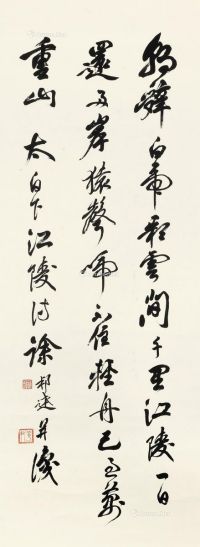 朝辞白帝彩雲間千里江陵一日
還兩岸猿聲啼不住輕舟已過萬
重山 太白下江陵詩 徐邦達並識